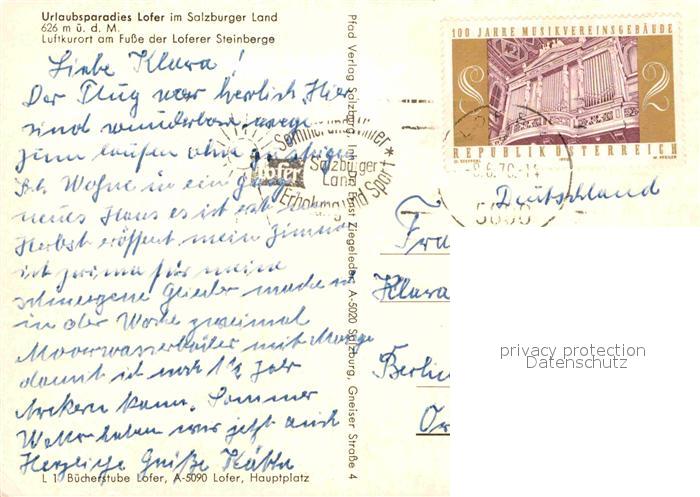 Urlaubsparadies Lofer im Salzburger Land
626 m ü. d. M.
Luftkurort am Fuße der Loferer Steinberge
Liebe Klara!
Der Flug war herlich, Hier
sind wunderbare wege
zum laufen ohne
Wohne in ein ganz
neues Haus es ist erst
Herbst eröffent mein Zimmer
ist prima für meine
Glieder mache
in der Woche zweimal
mit
damit ich noch 1½ Jahr
kann. Sommer
Wetter haben wir jetzt auch
Herzliche Grüße Käthe
L 1 Bücherstube Lofer, A-5090 Lofer, Hauptplatz
Pfad Verlag Salzburg, Inh. Ernst Ziegeleder, A-5020 Salzburg, Gneiser Straße 4
Sommer und Winter
Salzburger
Land
Lofer
Erholung und Sport
100 JAHRE MUSIKVEREINSGEBÄUDE
2
REPUBLIK ÖSTERREICH
Deutschland
Klara
Berlin
privacy protection
Datenschutz